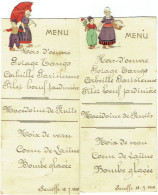 MENU
Hors d'œuvre
Potage Tango
Corbeille Parisienne
Filet bœuf jardinière
Macédoine de fruits
Noix de veau
Cœur de Laitue
Bombe glacée
MENU
Hors d'œuvre
Potage Tango
Corbeille Parisienne
Filet bœuf jardinière
Macédoine de fruits
Noix de veau
Cœur de Laitue
Bombe glacée